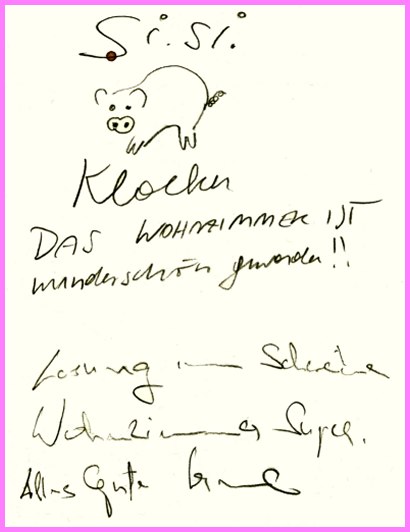 Si.Si.
Klocker
DAS WOHNZIMMER IST
wunderschön geworden!!
Lesung im Schönen
Wohnzimmer Super.
Alles Gute